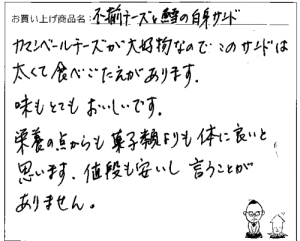 お買い上げ商品名: 不揃チーズと鱈の白身サンド
カマンベールチーズが大好物なので このサンドは
太くて食べごたえがあります。
味もとてもおいしいです。
栄養の点からも菓子類よりも体に良いと
思います。値段も安いし 言うことが
ありません。